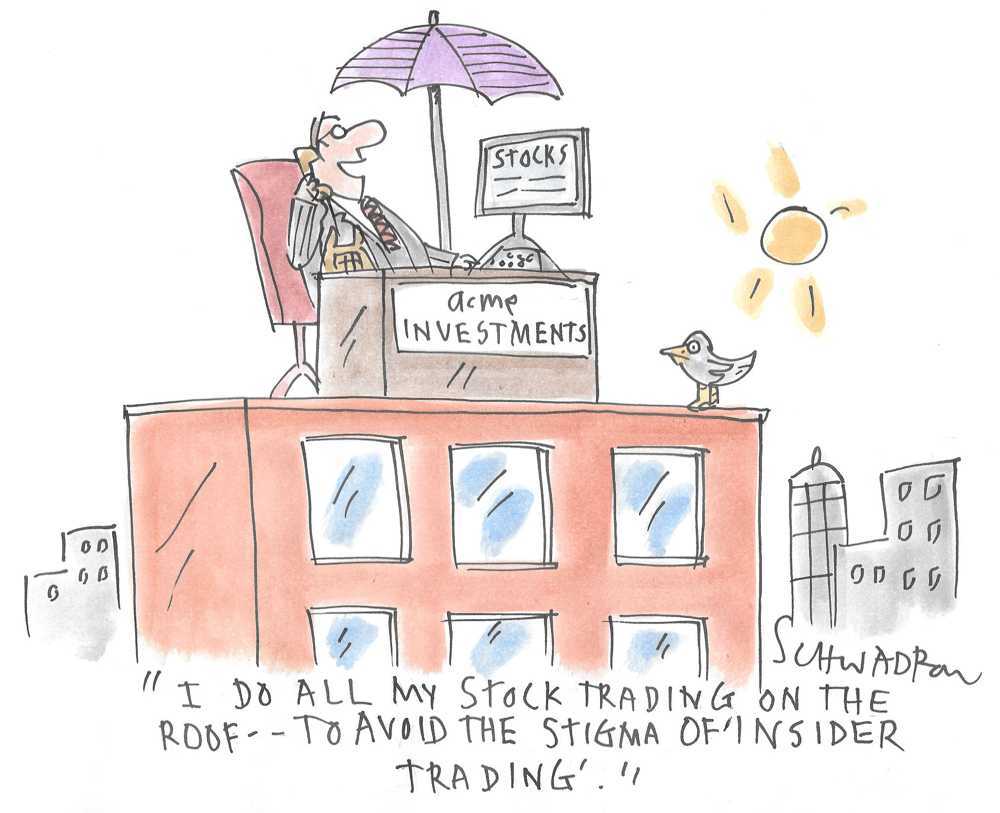 STOCKS
acme
INVESTMENTS
SCHWADRON
"I DO ALL MY STOCK TRADING ON THE
ROOF-- TO AVOID THE STIGMA OF 'INSIDER
TRADING'."